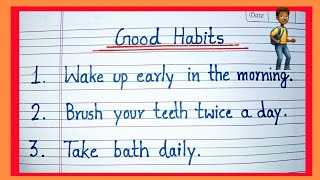 Date
Good Habits
1. Wake up early in the morning.
2. Brush your teeth twice a day.
3. Take bath daily.